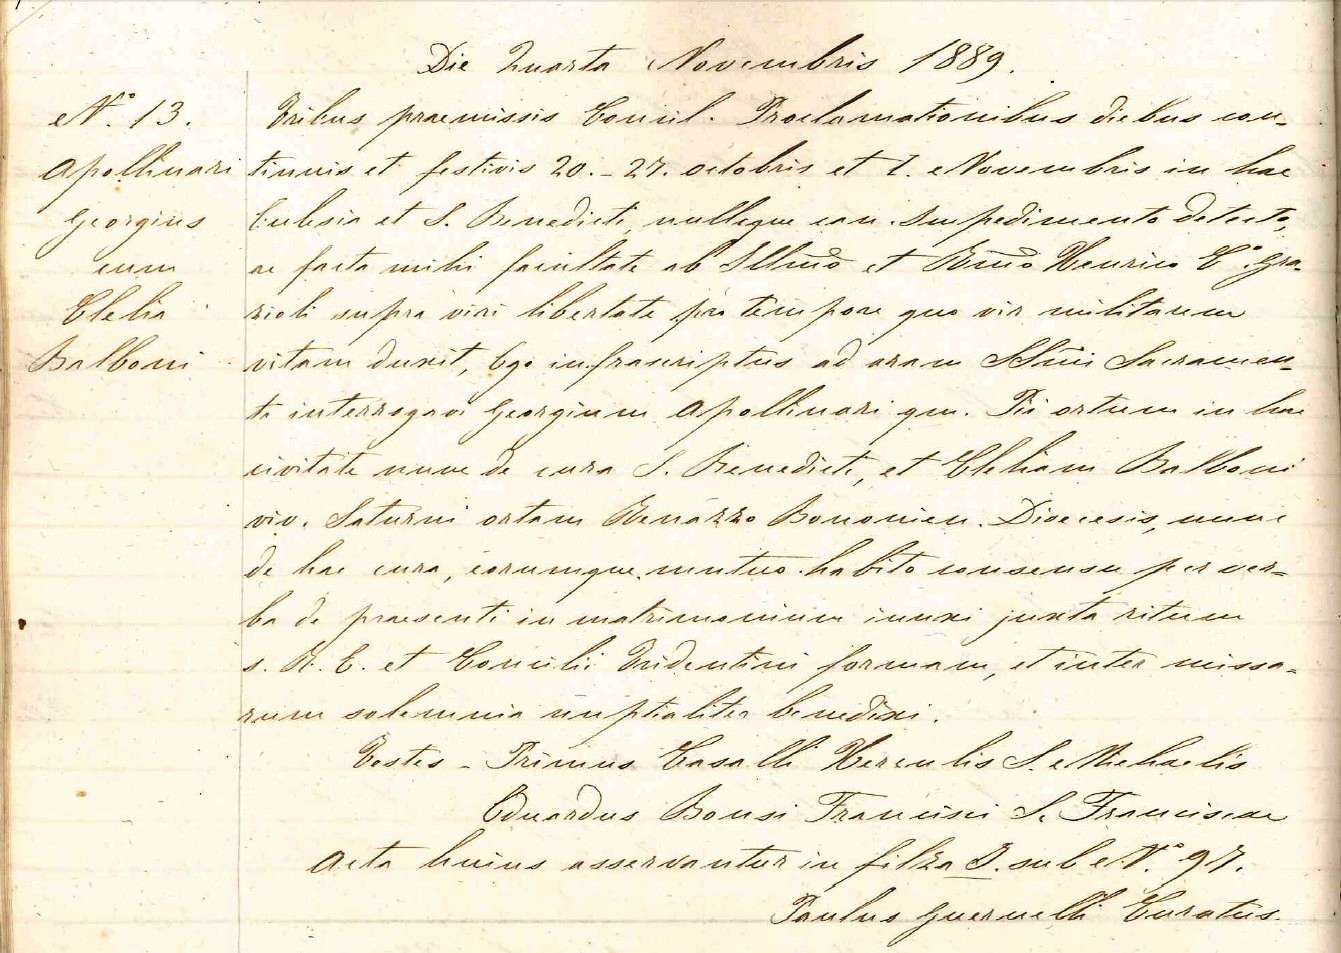 Die Quarta Novembris 1889.
N.° 13.
Apollinari
Georgius
cum
Clelia
Balboni
Tribus praemissis Concil. Proclamationibus diebus con-
tinuis et festivis 20. - 27. octobris et 1. Novembris in hac
Ecclesia et S. Benedicti, nulloque can. Impedimento detecto,
ac facta mihi facultate ab Illmo et Rmo Henrico C.° Gra-
zioli supra viri libertate pro tempore quo vir militarem
vitam duxit, Ego infrascriptus ad aram SSmi Sacramen-
ti interrogavi Georgium Apollinari qm. Pii ortum in hac
civitate nunc de cura S. Benedicti, et Cleliam Balboni
viv. Saturni ortam Renazzo Bononien. Dioecesis, nunc
de hac cura, eorumque mutuo habito consensu per ver-
ba de praesenti in matrimonium iunxi juxta ritum
S. R. E. et Concilii Tridentini formam, et inter missa-
rum solemnia nuptialiter benedixi.
Testes - Primus Casalli Herculis S. Michaelis
Eduardus Bonsi Francisci S. Francisci
Acta huius asservantur in filza I. sub N.° 97.
Paulus Guernelli Curatus.